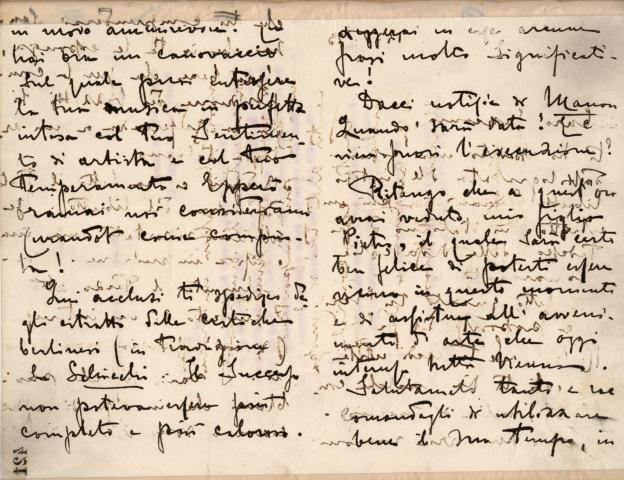 in modo amichevole! Tu
hai ora un canovaccio
sul quale puoi intessere
la tua musica in perfetta
intesa col tuo Sentimen-
to di artista e col tuo
temperamento. Eppure
ormai noi consideriamo
Turandot come compiu-
ta!
Qui acclusi ti spedisco de-
gli estratti delle critiche
berlinesi (in traduzione)
su Schicchi. Il successo
non poteva essere più
completo e più caloroso.
421
in esse alcune
frasi molto significati-
ve!
Dacci notizie di Manon
Quando sarà data? Ti è
l'esecuzione?
Ritengo che a quest'ora
avrai veduto mio figlio
Pietro, il quale sarà certo
ben felice di poterti essere
vicino in questi momenti
e di assistere all'avveni-
mento di arte che oggi
tutta Vienna.
Salutamelo tanto e rac-
comandagli di utilizzare
bene il suo tempo, in